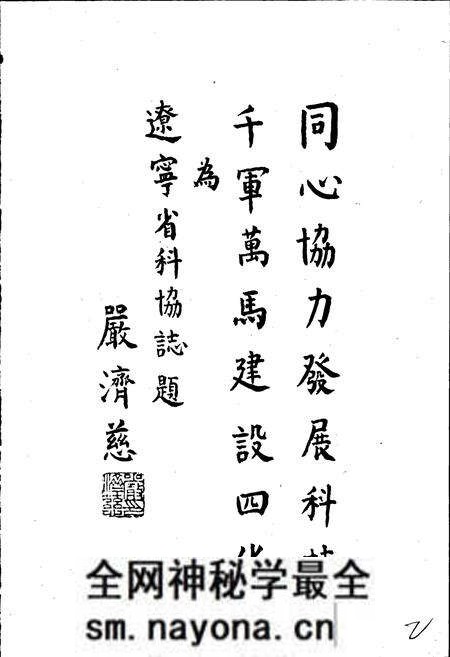 同心協力發展科
千軍萬馬建設四
為
遼寧省科協誌題
嚴濟慈
全网神秘学最全
sm.nayona.cn